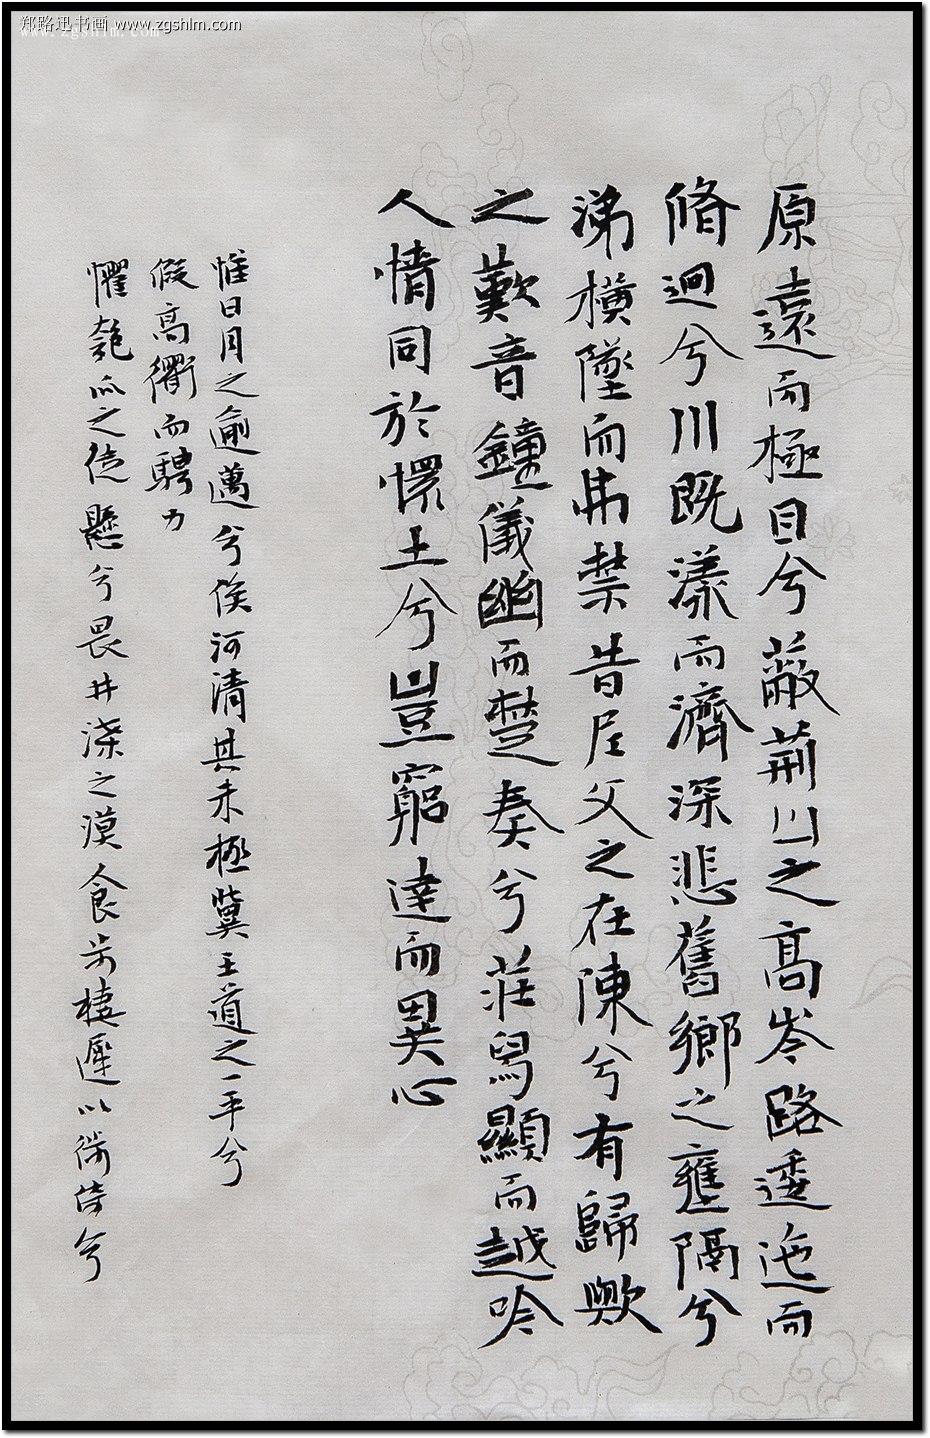 郑路迅书画 www.zgshlm.com
www.zgshlm.com
原遠而極目兮蔽荊山之高岑路逶迤而
脩迴兮川既漾而濟深悲舊鄉之壅隔兮
涕橫墜而弗禁昔尼父之在陳兮有歸歟
之歎音鐘儀幽而楚奏兮莊舄顯而越吟
人情同於懷土兮豈窮達而異心
惟日月之逾邁兮俟河清其未極冀王道之一平兮
假高衢而騁力
懼匏瓜之徒懸兮畏井渫之漠食步棲遲以徜徉兮